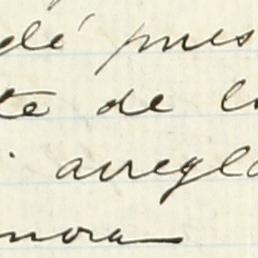 dé pues
te de l
arregla
mora